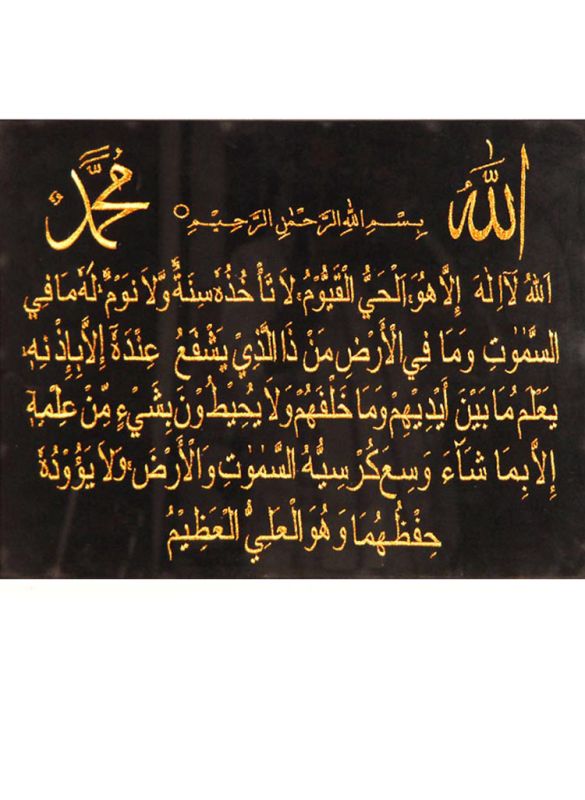 الله بِسْمِ اللهِ الرَّحْمٰنِ الرَّحِيْمِ مُحَمَّدٌ
اَللهُ لَآ اِلٰهَ إِلَّا هُوَ اَلْحَيُّ الْقَيُّوْمُ لَا تَأْخُذُهُ سِنَةٌ وَّلَا نَوْمٌ لَهُ مَا فِي
السَّمٰوٰتِ وَمَا فِي الْأَرْضِ مَنْ ذَا الَّذِيْ يَشْفَعُ عِنْدَهُ إِلَّا بِإِذْنِهِ
يَعْلَمُ مَا بَيْنَ أَيْدِيْهِمْ وَمَا خَلْفَهُمْ وَلَا يُحِيْطُوْنَ بِشَيْءٍ مِّنْ عِلْمِهِ
إِلَّا بِمَا شَآءَ وَسِعَ كُرْسِيُّهُ السَّمٰوٰتِ وَالْأَرْضَ وَلَا يَؤُوْدُهُ
حِفْظُهُمَا وَهُوَ الْعَلِيُّ الْعَظِيْمُ